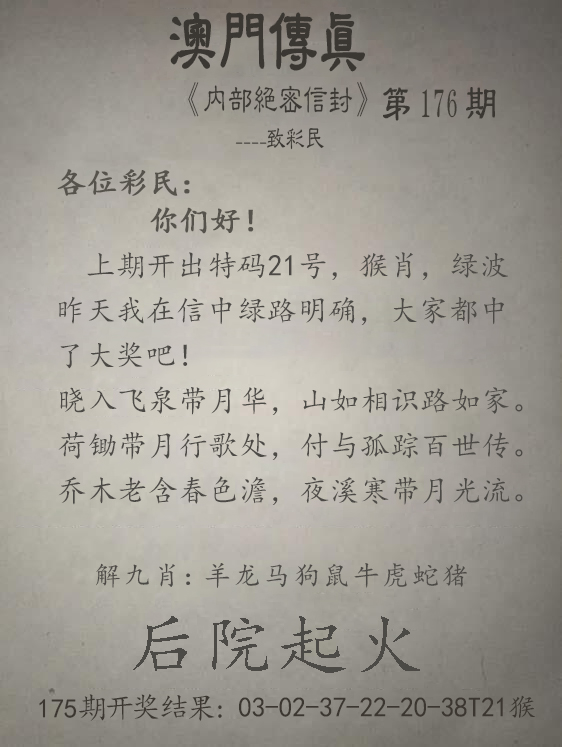 澳門傳眞
《内部絕密信封》第176期
----致彩民
各位彩民：
你们好！
上期开出特码21号，猴肖，绿波
昨天我在信中绿路明确，大家都中
了大奖吧！
晓入飞泉带月华，山如相识路如家。
荷锄带月行歌处，付与孤踪百世传。
乔木老含春色澹，夜溪寒带月光流。
解九肖：羊龙马狗鼠牛虎蛇猪
后院起火
175期开奖结果：03-02-37-22-20-38T21猴